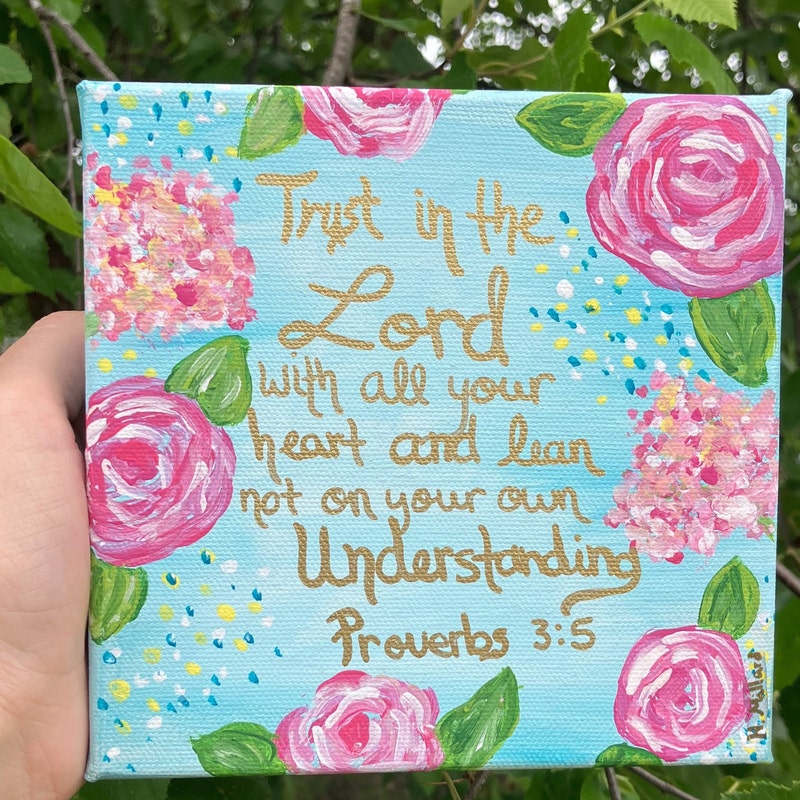 Trust in the
Lord
with all your
heart and lean
not on your own
Understanding
Proverbs 3:5
H. Millard